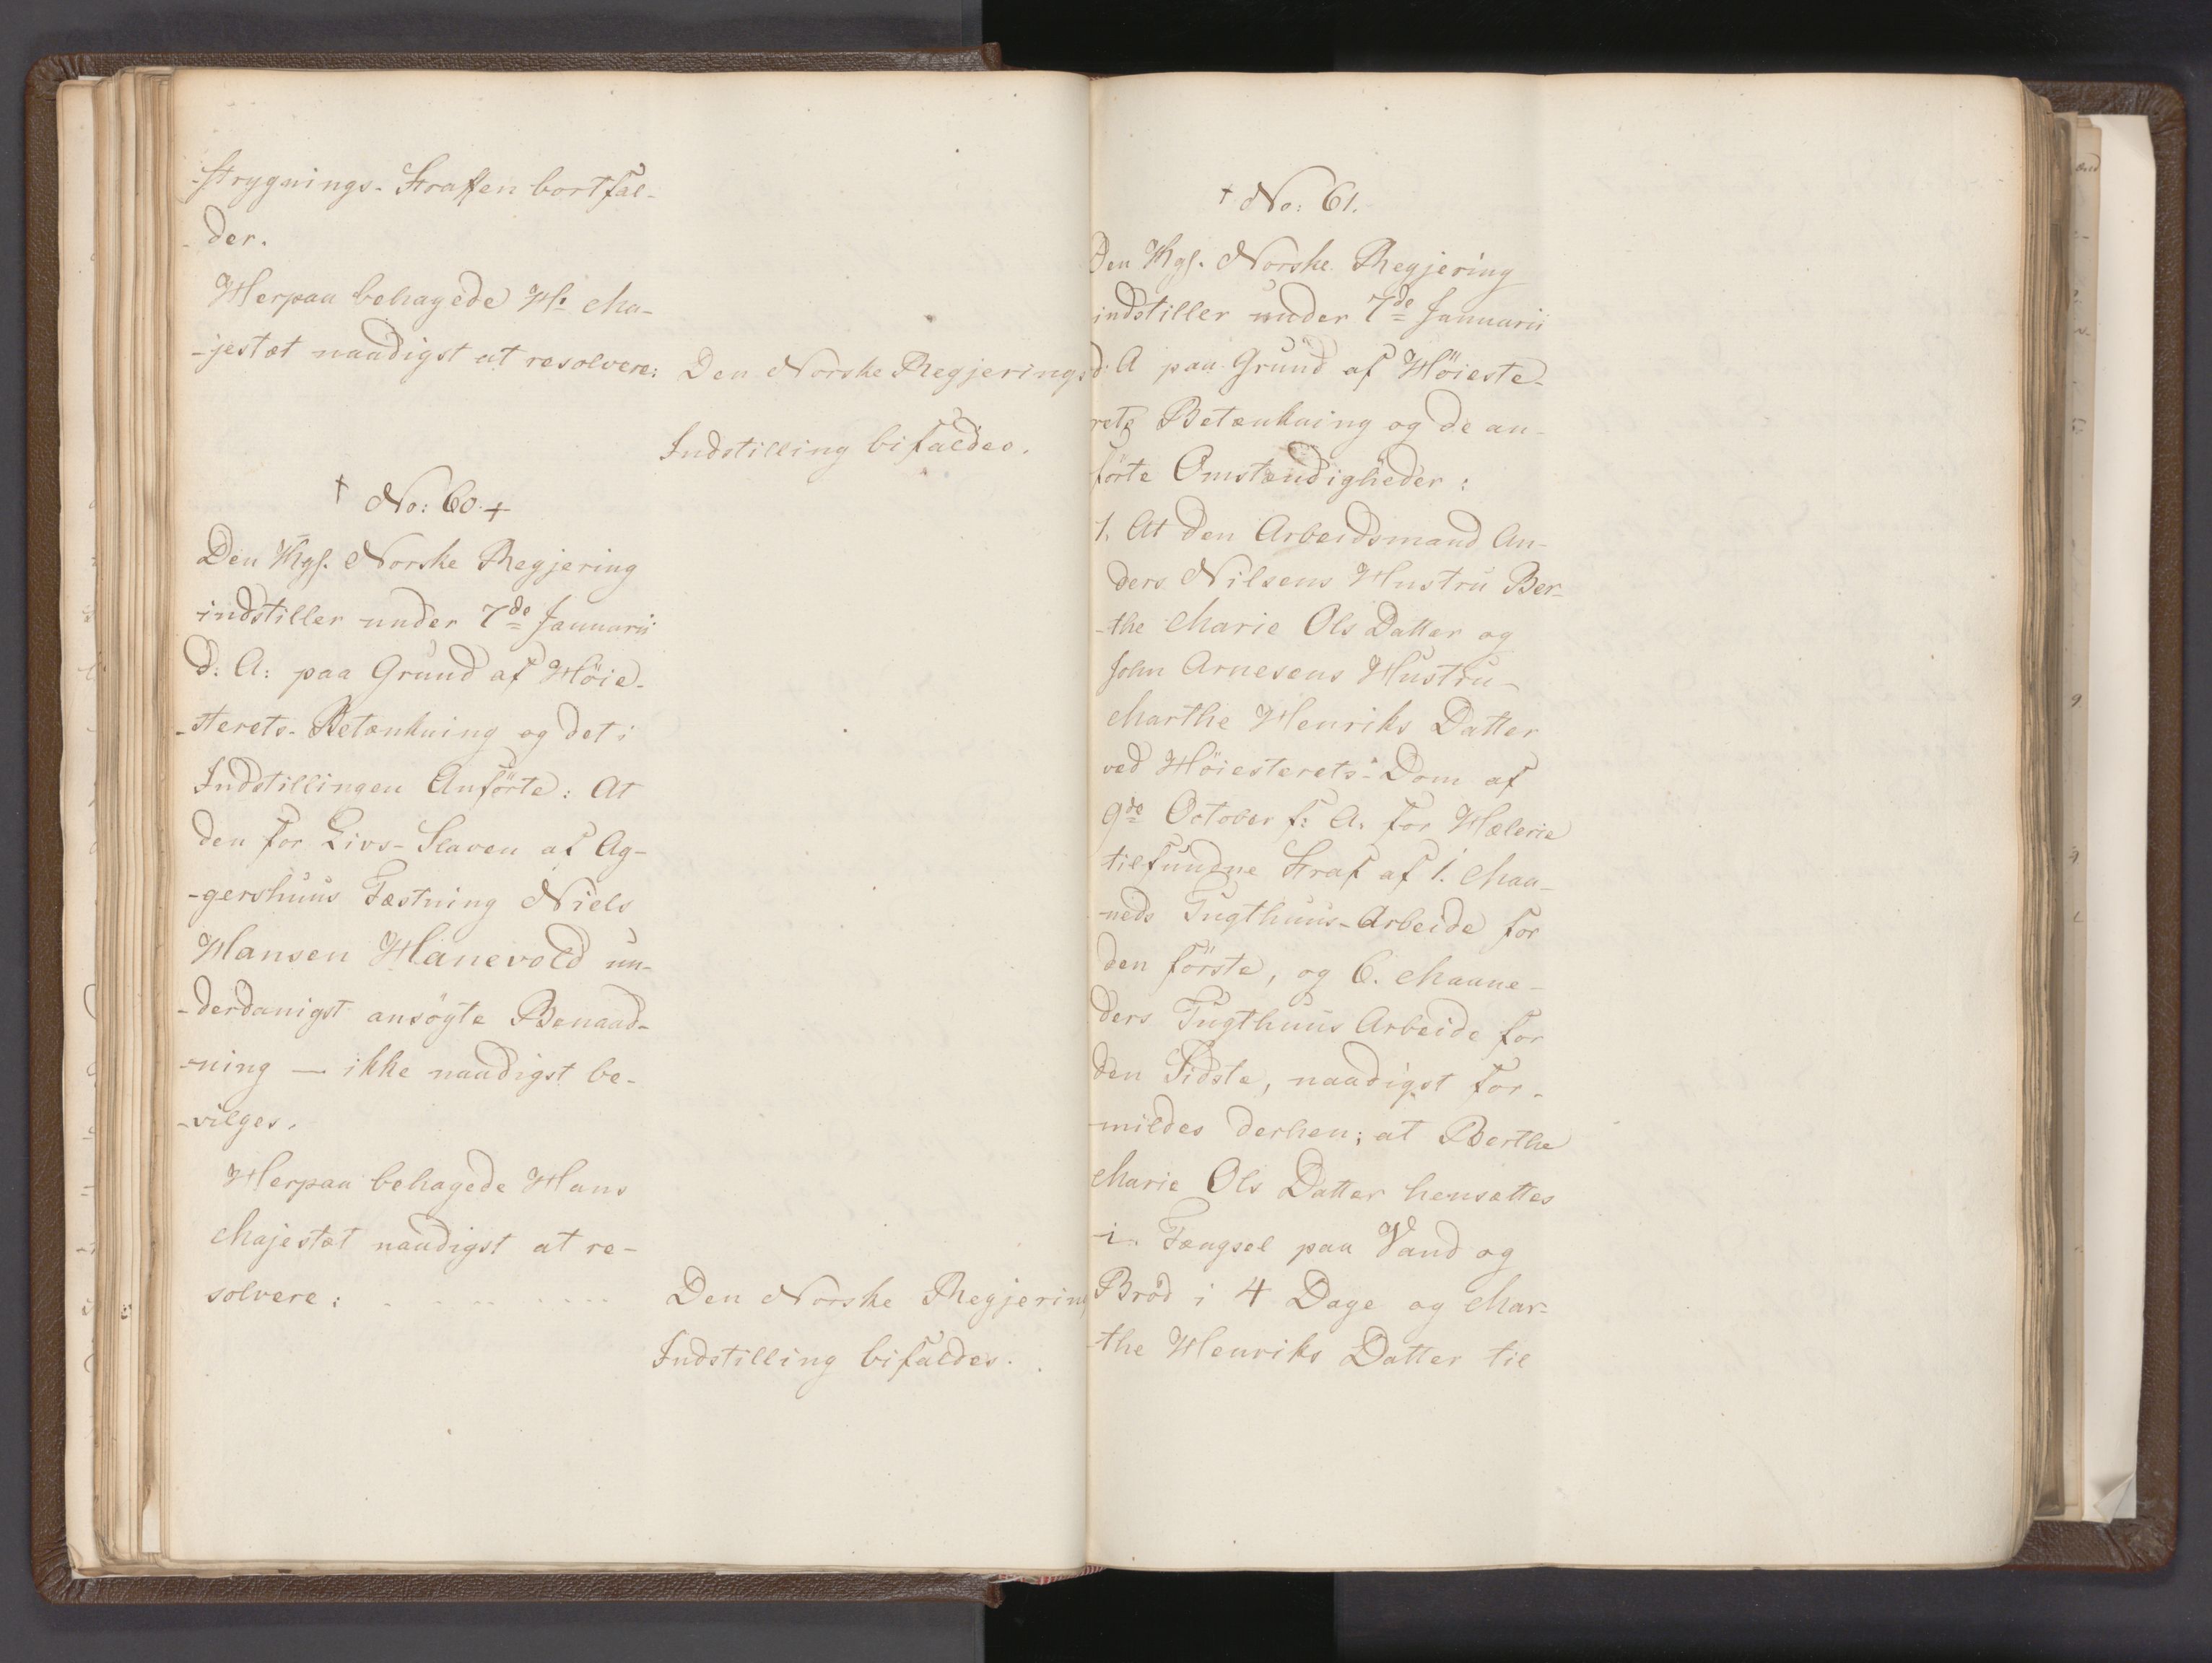 -strygnings-Straffen bortfal-
-der.
Herpaa behagede H: Ma-
-jestæt naadigst at resolvere:
Den Norske Regjerings
Indstilling bifaldes.
† No: 60. +
Den Kgl. Norske Regjering
indstiller under 7de Januarii
d: A: paa Grund af Höie-
-sterets-Betænkning og det i
Indstillingen Anförte: At
den for Livs-Slaven af Ag-
-gershuus Fæstning Niels
Hansen Hanevold un-
-derdanigst ansögte Benaad-
-ning — ikke naadigst be-
-vilges.
Herpaa behagede Hans
Majestæt naadigst at re-
solvere:
Den Norske Regjering
Indstilling bifaldes.
† No: 61.
Den Kgl. Norske Regjering
indstiller under 7de Januarii
d: A paa Grund af Höieste-
rets Betænkning og de an-
förte Omstændigheder:
1. At den Arbeidsmand An-
ders Nilsens Hustru Ber-
-the Marie Ols Datter og
John Arnesens Hustru-
Marthe Henriks Datter
ved Höiesterets-Dom af
9de October f: A. for Hælerie
tilfundne Straf af 1. Maa-
-neds Tugthuus-Arbeide for
den förste, og 6. Maane-
ders Tugthuus Arbeide for
den Sidste, naadigst for-
-mildes derhen; at Berthe
Marie Ols Datter hensættes
i Fængsel paa Vand og
Bröd i 4 Dage og Mar-
-the Henriks Datter til